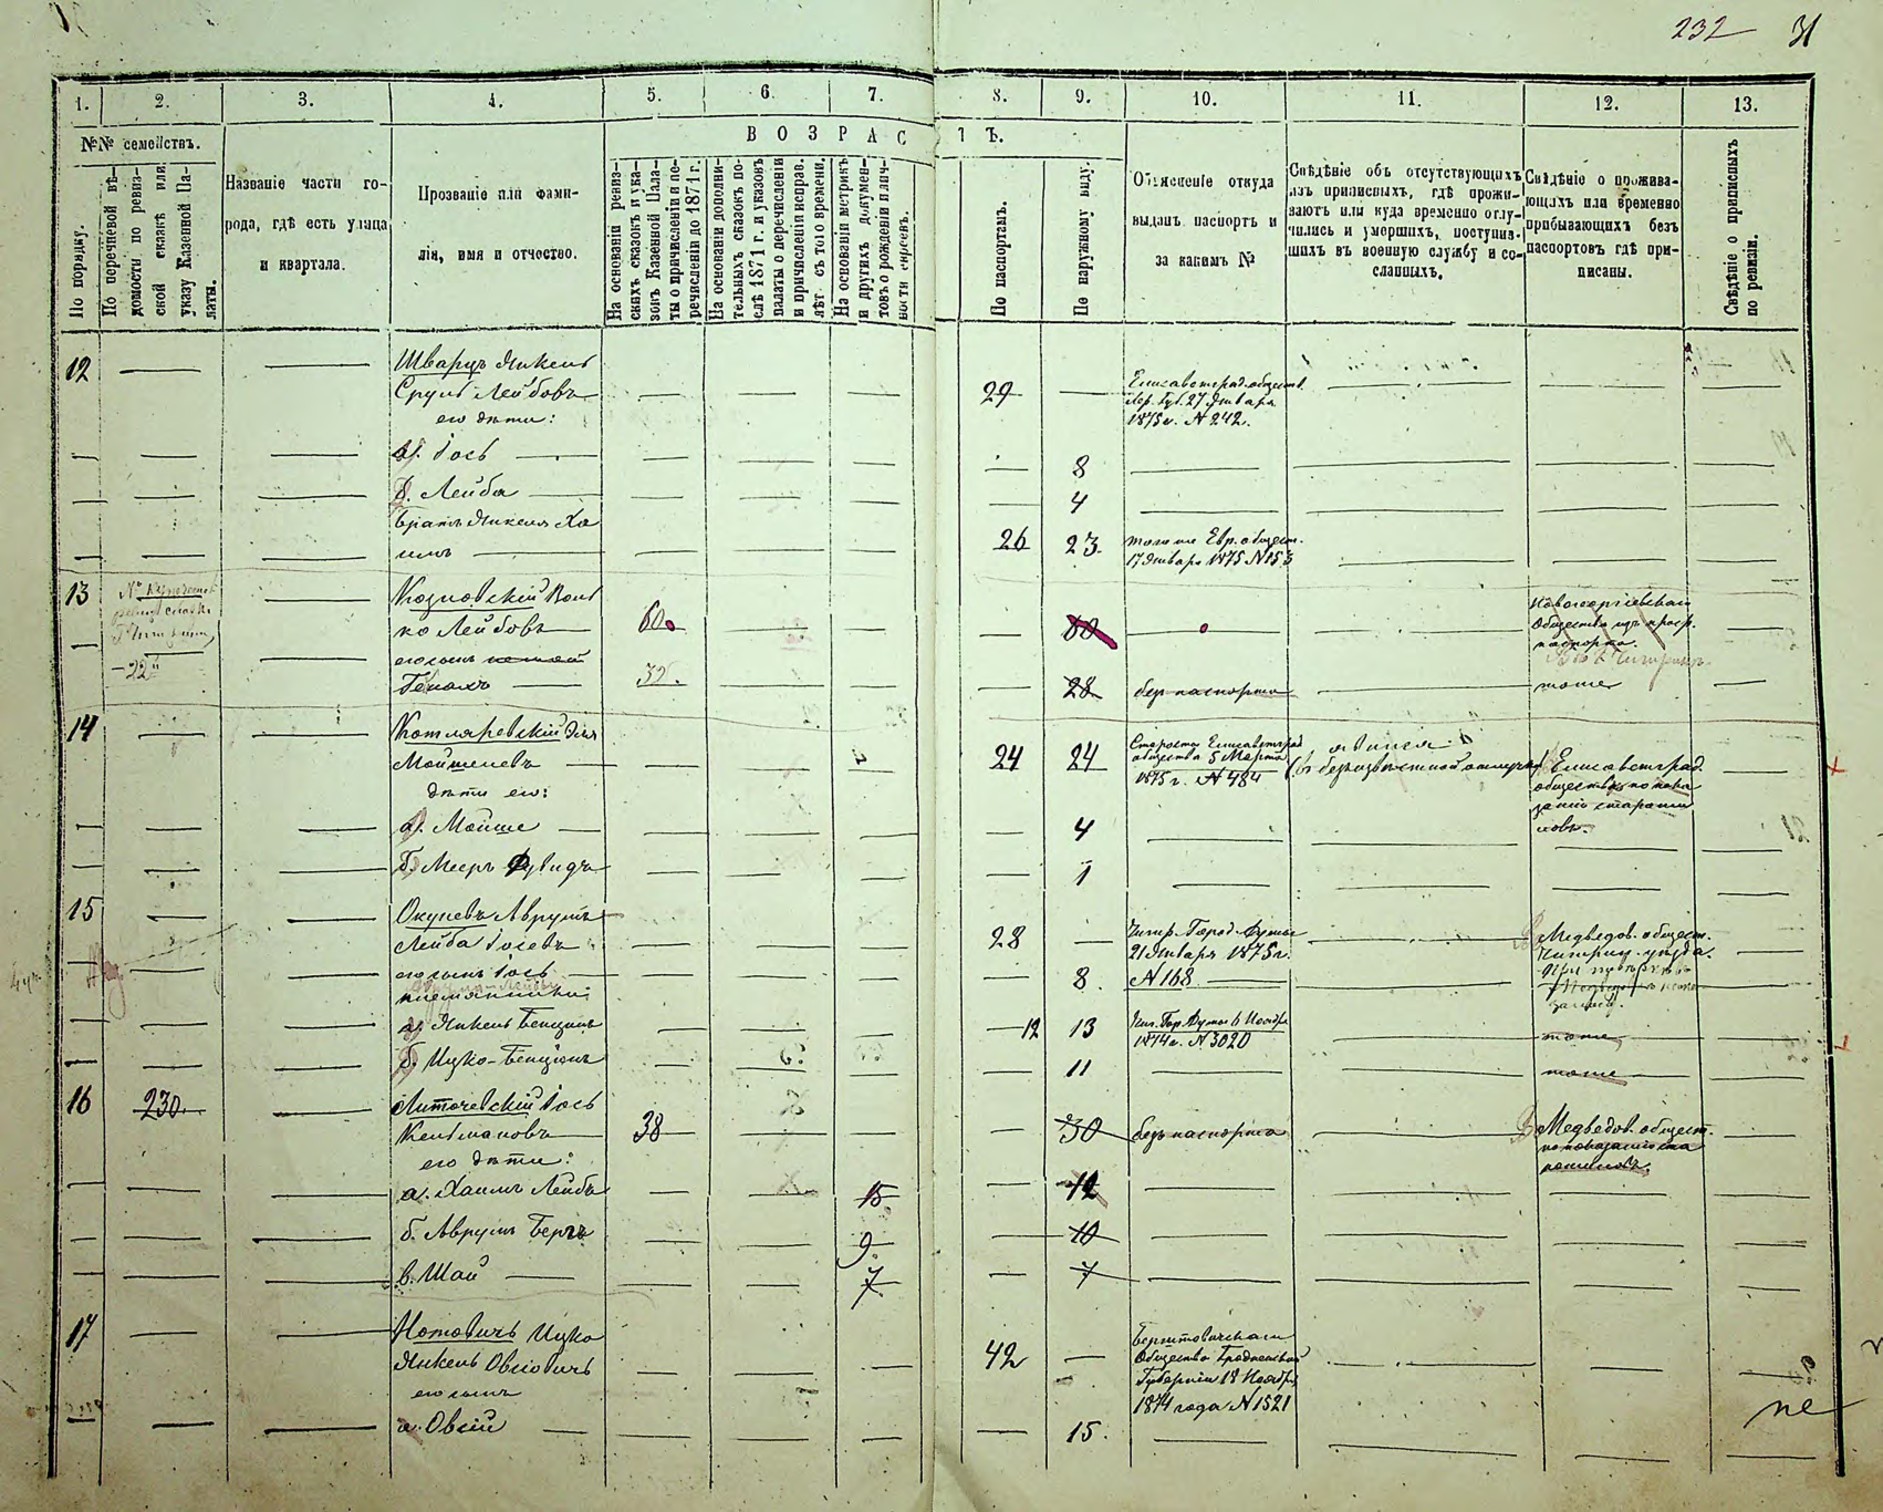 232 31
1. 2. 3. 4. 5. 6. 7. 8. 9. 10. 11. 12. 13.
№№ семействъ.
ВОЗРАСТЪ.
По порядку.
По перечневой вѣ-
домости по ревиз-
ской сказкѣ или
указу Казенной Па-
латы.
Названіе части го-
рода, гдѣ есть улица
и квартала.
Прозваніе или фами-
лія, имя и отчество.
На основаніи ревиз-
скихъ сказокъ и ука-
зовъ Казенной Пала-
ты о причисленіи и пе-
речисленіи до 1871 г.
На основаніи дополни-
тельныхъ сказокъ по-
слѣ 1871 г. и указовъ
палаты о перечисленіи
и причисленіи исправ.
лѣт съ того времени.
На основаніи метрикъ
и другихъ докумен-
товъ о рожденіи и лич-
ности евреевъ.
По паспортамъ.
По наружному виду.
Объясненіе откуда
выданъ паспортъ и
за какимъ №
Свѣдѣніе объ отсутствующихъ
изъ приписныхъ, гдѣ прожи-
ваютъ или куда временно отлу-
чились и умершихъ, поступив-
шихъ въ военную службу и со-
сланныхъ.
Свѣдѣніе о прожива-
ющихъ или временно
прибывающихъ безъ
паспортовъ гдѣ при-
писаны.
Свѣдѣніе о приписныхъ
по ревизіи.
12 Шварцъ Янкель
Сруль Лейбовъ 29 Елисаветград. обществ.
Хер. Губ. 27 Января
его дѣти: 1875 г. № 242.
а). Іось 8
б. Лейба 4
Братъ Янкеля Ха
имъ 26 23 того же Евр. общест.
17 Января 1875 № 153
13 Козловскій Воль
ко Лейбовъ 60 60 Новогеоргіевскаго
общества
паспорта.
его сынъ
32. 28 безъ паспорта тоже
-22
14 Котляревскій Эля
Мошелевъ 24 24 Староста Елисаветград.
общества 5 Марта
1875 г. № 484
явился
въ безъизвѣстной отлучкѣ
Елисаветград.
общества по пока
занію старожи
ловъ.
дѣти его:
а). Мойше 4
б. Мееръ Дувидъ 1
15 Окуневъ Аврумъ
Лейба Іосевъ 28 Чигир. Город. Думы
21 Января 1875 г.
№ 168
Медведов. общест.
Чигирин. уѣзда.
его сынъ Іось 8
племянники:
а). Янкель Бенціонъ 12 13 Чиг. Гор. Думы 6 Ноября
1874 г. № 3020 тоже
б. Ицко-Бенціонъ 11 тоже
16 230 Литочевскій Іось
Кельмановъ 38 30 безъ паспорта Медведов. общест.
по показанію ста
рожиловъ.
его дѣти:
а. Хаимъ Лейба 15 12
б. Аврумъ Беръ 9. 10
в. Шая 7 7
17 Нотовичъ Ицко
Янкель Овсіовичъ 42
Общества Гродненской
Губерніи 18 Ноября
1874 года № 1521
его сынъ
а. Овсій 15.
не